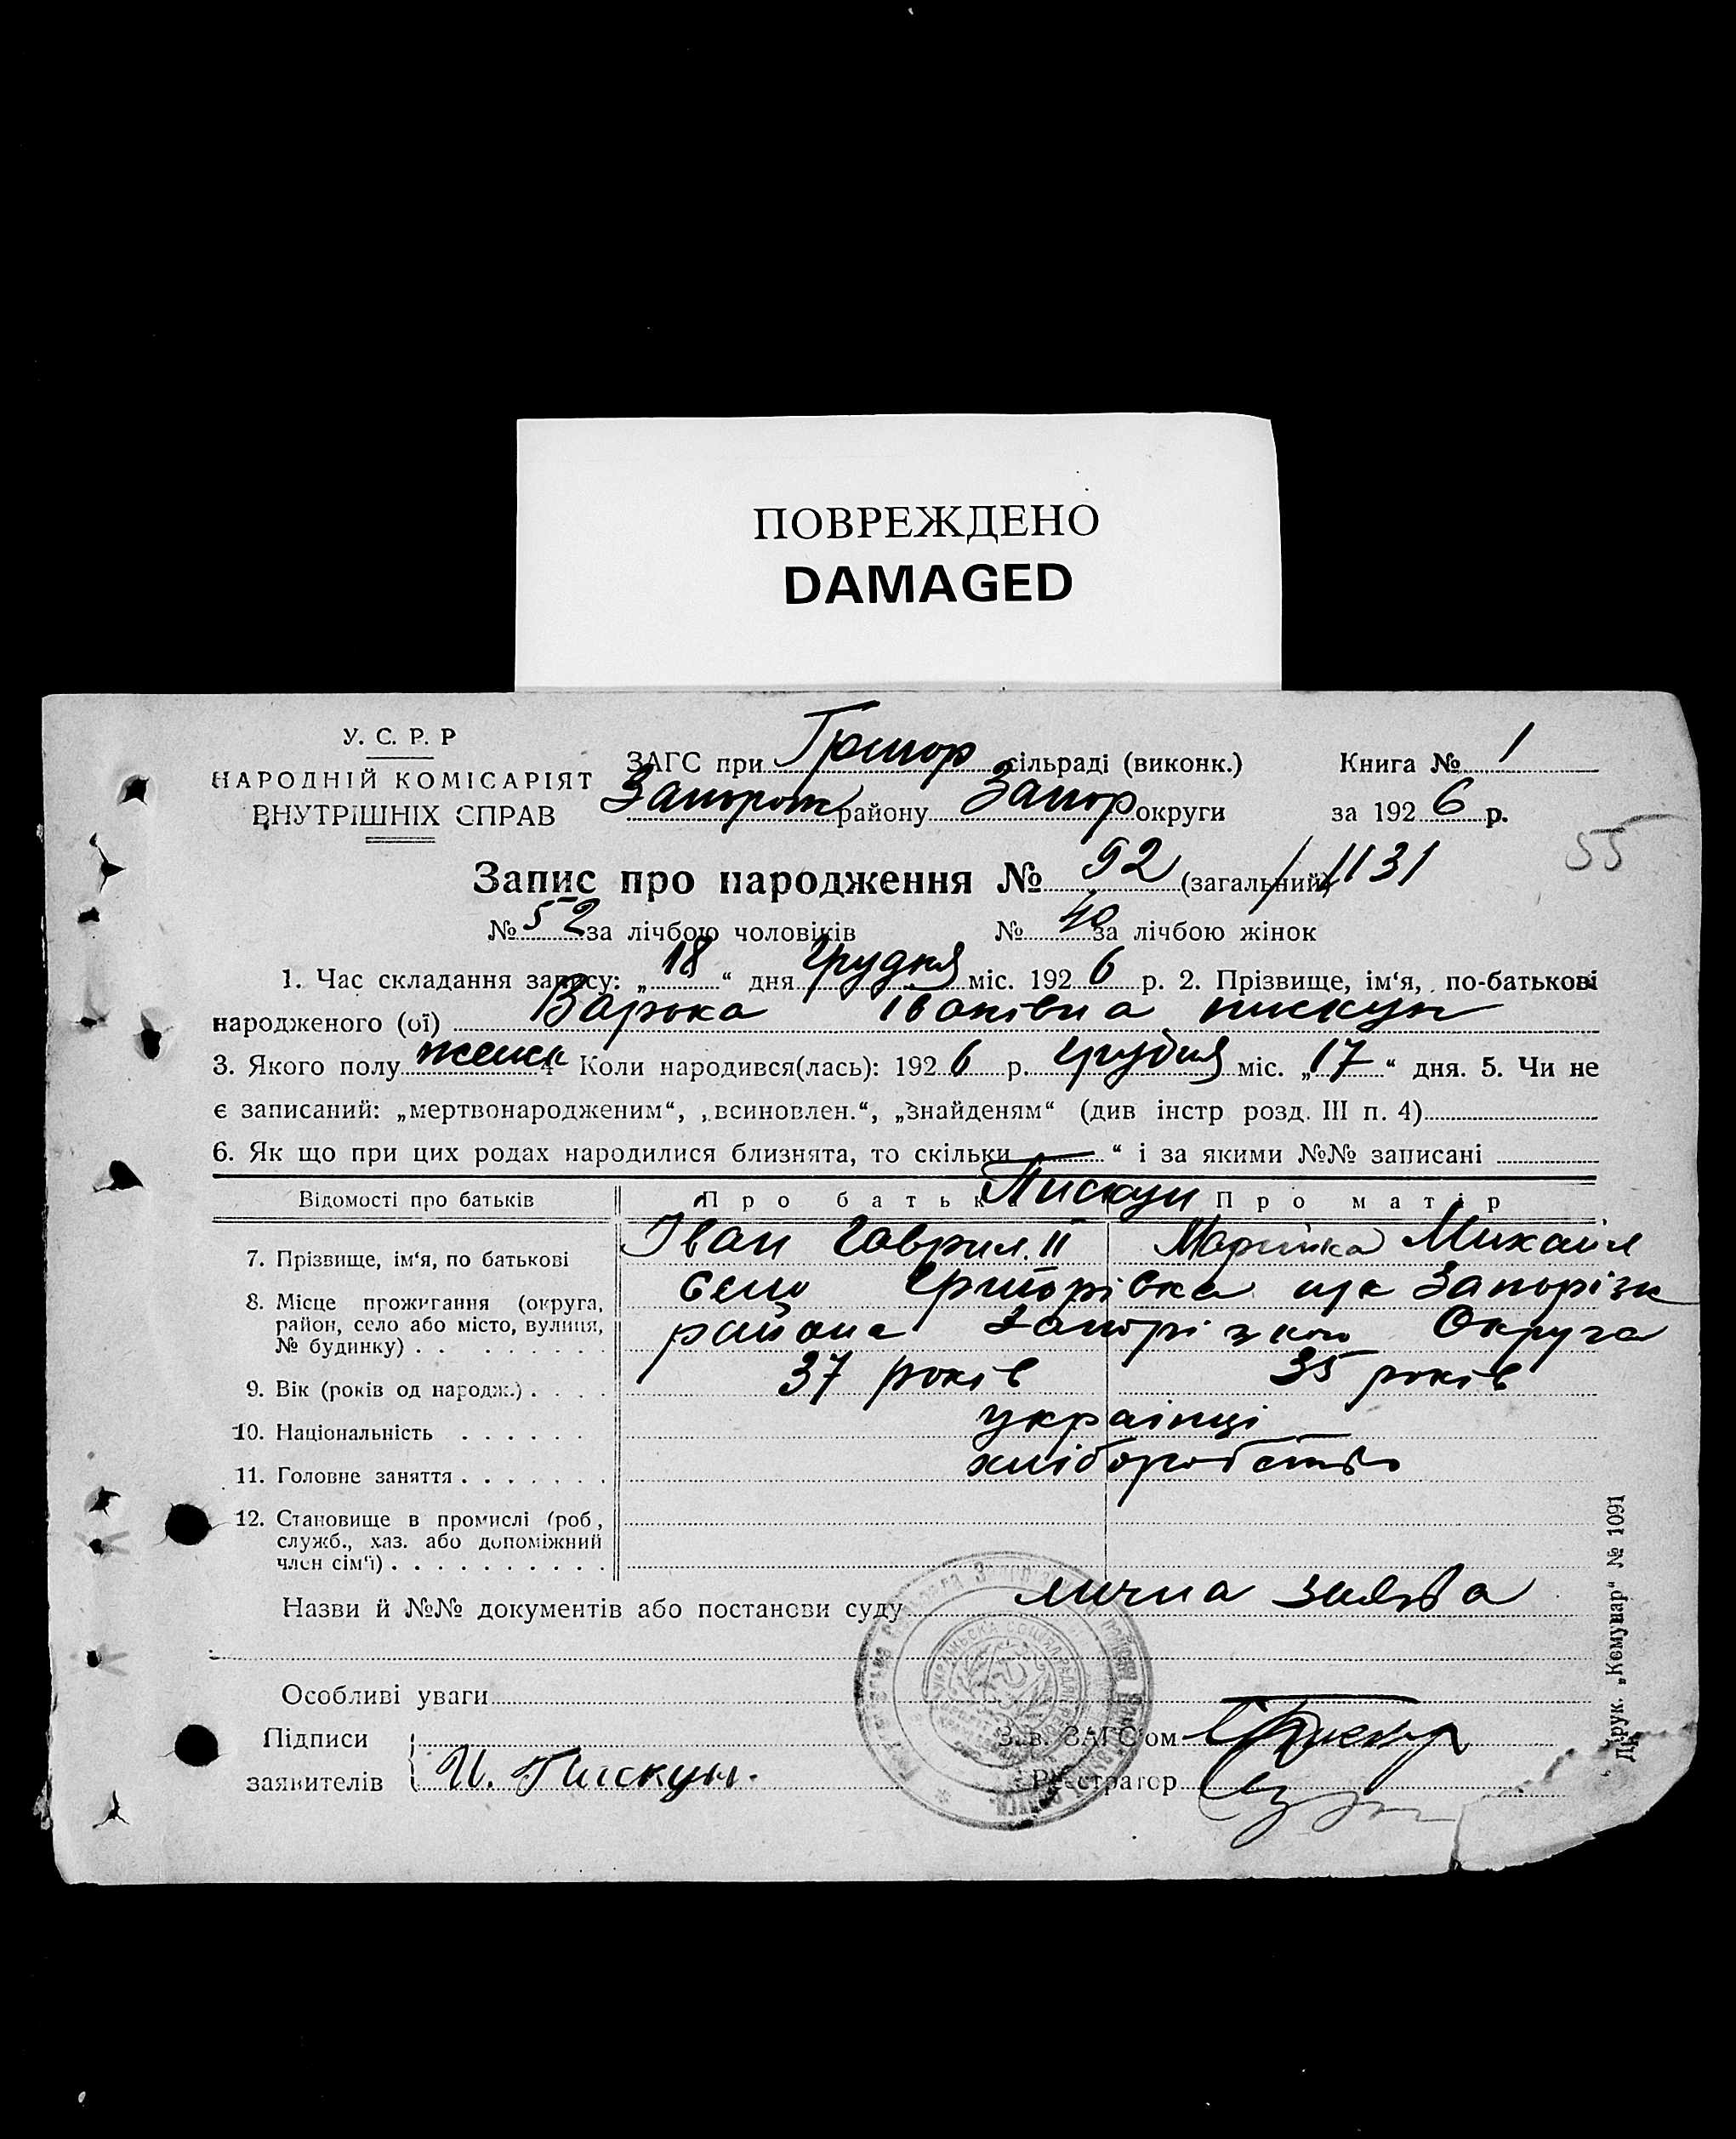 ПОВРЕЖДЕНО
DAMAGED
У. С. Р. Р
НАРОДНІЙ КОМІСАРІЯТ
ВНУТРІШНІХ СПРАВ
ЗАГС при Григор сільраді (виконк.)
Запорож району Запор округи
Книга № 1
за 1926 р.
55
Запис про народження № 92 (загальний) 1131
№ 52 за лічбою чоловіків № 40 за лічбою жінок
1. Час складання запису: „18“ дня Грудня міс. 1926 р. 2. Прізвище, ім‘я, по-батькові
народженого (ої) Варька Іванівна пискун
3. Якого полу женск 4. Коли народився(лась): 1926 р. Грудня міс. „17“ дня. 5. Чи не
є записаний: „мертвонародженим“, „всиновлен.“, „знайденям“ (див інстр розд. III п. 4)
6. Як що при цих родах народилися близнята, то скільки “ і за якими №№ записані
Відомості про батьків Про батька Пискун Про матір
7. Прізвище, ім‘я, по батькові Іван Гаврил. II Марійка Михайл
8. Місце прожигання (округа, село Григорівка Запорізк
район, село або місто, вулиця, района Запорізкою Округа
№ будинку)
9. Вік (років од народж.) 37 років 35 років
10. Національність українці
11. Головне заняття хліборобство
12. Становище в промислі (роб,
служб., хаз. або допоміжний
член сім‘ї)
Назви й №№ документів або постанови суду лична заява
Особливі уваги
Підписи Зав. ЗАГС‘ом
заявителів И. Пискун. Реєстратор
Друк. „Комунар“ № 1091